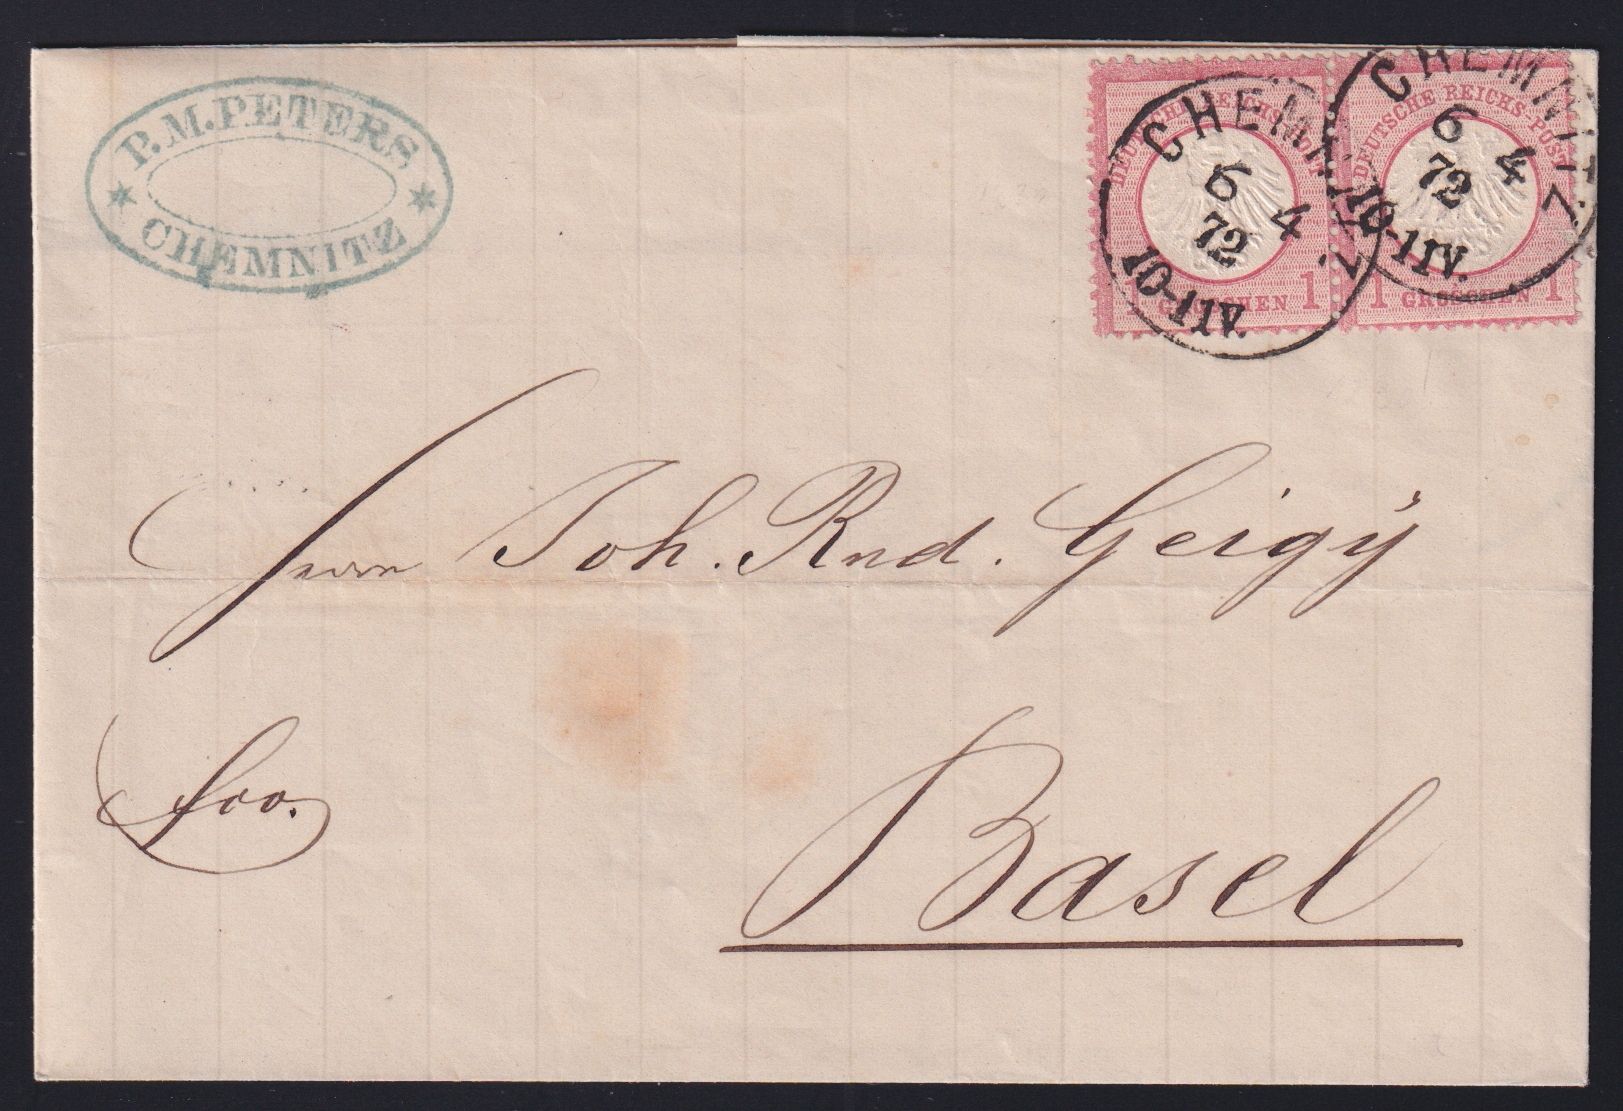 P.M.PETERS
CHEMNITZ
DEUTSCHE REICHS-POST
1 GROSCHEN 1
DEUTSCHE REICHS-POST
1 GROSCHEN 1
CHEMNITZ
6 4
72
10-11V.
CHEMNITZ
6 4
72
10-11V.
Herrn Joh. Rud. Geigÿ
fco.
Basel